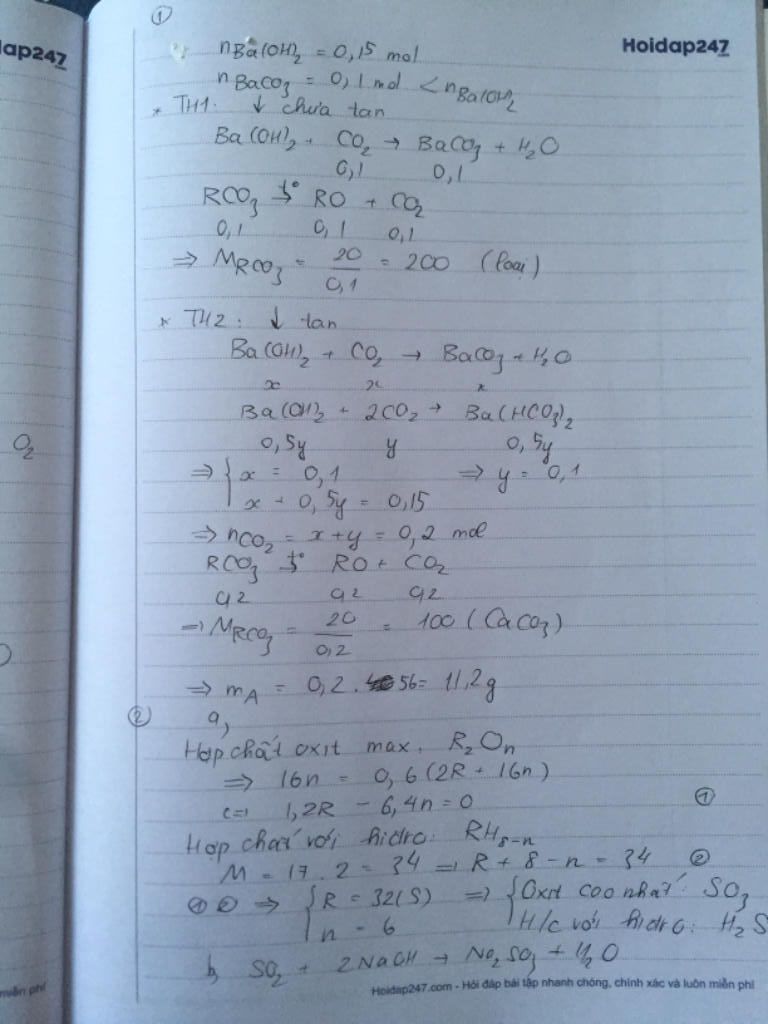 ①
dap247
Hoidap247
nBa(OH)₂ = 0,15 mol
nBaCO₃ = 0,1 mol < nBa(OH)₂
* TH1: ↓ chưa tan
Ba(OH)₂ + CO₂ → BaCO₃ + H₂O
0,1 0,1
RCO₃ t°→ RO + CO₂
0,1 0,1 0,1
⇒ MRCO₃ = 20/0,1 = 200 (loại)
* TH2: ↓ tan
Ba(OH)₂ + CO₂ → BaCO₃ + H₂O
x x x
Ba(OH)₂ + 2CO₂ → Ba(HCO₃)₂
O₂
0,5y y 0,5y
⇒ { x = 0,1 ⇒ y = 0,1
x + 0,5y = 0,15
⇒ nCO₂ = x+y = 0,2 mol
RCO₃ t°→ RO + CO₂
0,2 0,2 0,2
⇒ MRCO₃ = 20/0,2 = 100 (CaCO₃)
⇒ mA = 0,2 . 56 = 11,2g
②
a,
Hợp chất oxit max. R₂On
⇒ 16n = 0,6(2R + 16n)
<=> 1,2R - 6,4n = 0 ①
Hợp chất với hidro: RH₈₋n
M = 17.2 = 34 ⇒ R + 8 - n = 34 ②
① ② ⇒ { R = 32(S) ⇒ { Oxit cao nhất: SO₃
n = 6 H/c với hidro: H₂S
b, SO₂ + 2NaOH → Na₂SO₃ + H₂O
miễn phí
Hoidap247.com - Hỏi đáp bài tập nhanh chóng, chính xác và luôn miễn phí